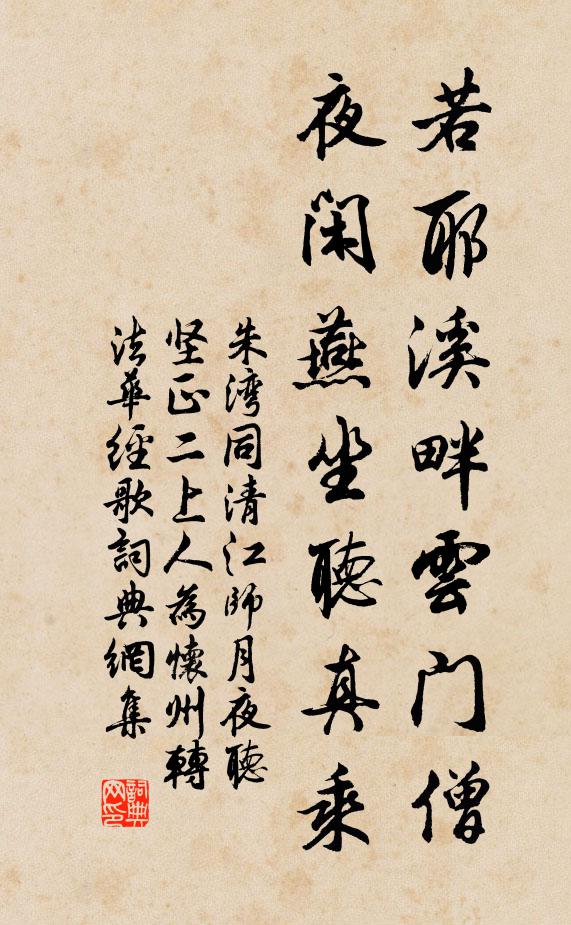 若耶溪畔雲门僧
夜闲燕坐聽真乘
朱湾同清江師月夜聽
坚正二上人為懷州轉
法華經歌詞典網集
詞典
网印